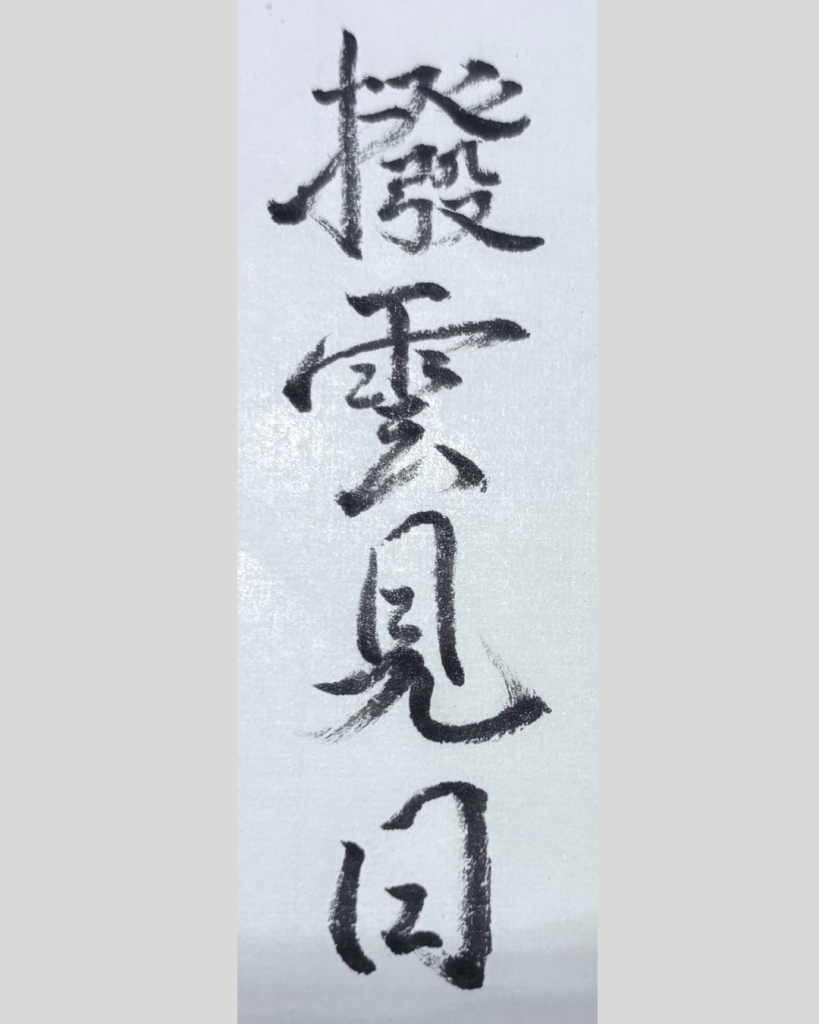 撥雲見日